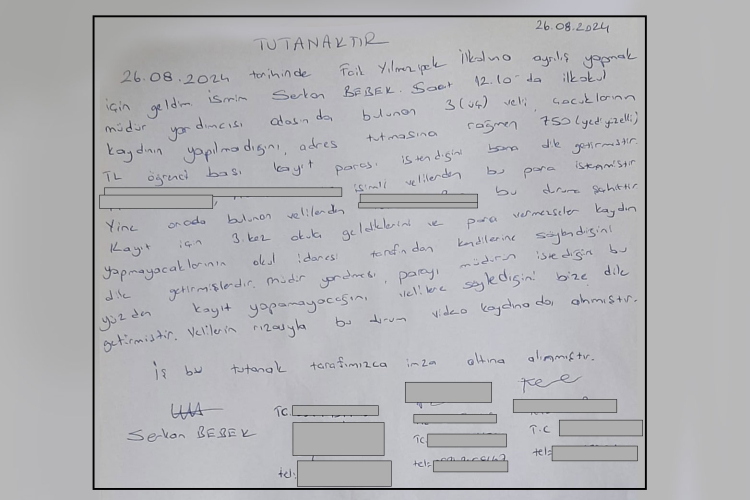 26.08.2024
TUTANAKTIR
26.08.2024 tarihinde Faik Yılmazipek İlkokuluna ayrılış yapmak
için geldim ismim Serkan BEBEK. Saat 12.10 da ilkokul
müdür yardımcısı odasında bulunan 3(üç) veli, çocuklarının
kaydının yapılmadığını, adres tutmasına rağmen 750 (yediyüzelli)
TL öğrenci başı kayıt parası istendiğini bana dile getirmiştir.
isimli velilerden bu para istenmiştir
bu duruma şahittir
Yine orada bulunan velilerden
Kayıt için 3. kez okula geldiklerini ve para vermezseler kaydın
yapmayacaklarının okul idaresi tarafından kendilerine söylendiğini
dile getirmişlerdir. müdür yardımcısı, parayı müdürün istediğini bu
yüzden kayıt yapamayacağını velilere söylediğini bize dile
getirmiştir. Velilerin rızasıyla bu durum video kaydına da alınmıştır.
İş bu tutanak tarafımızca imza altına alınmıştır.
Serkan BEBEK
TC
tel:
TC:
tel:
T.C
tel: